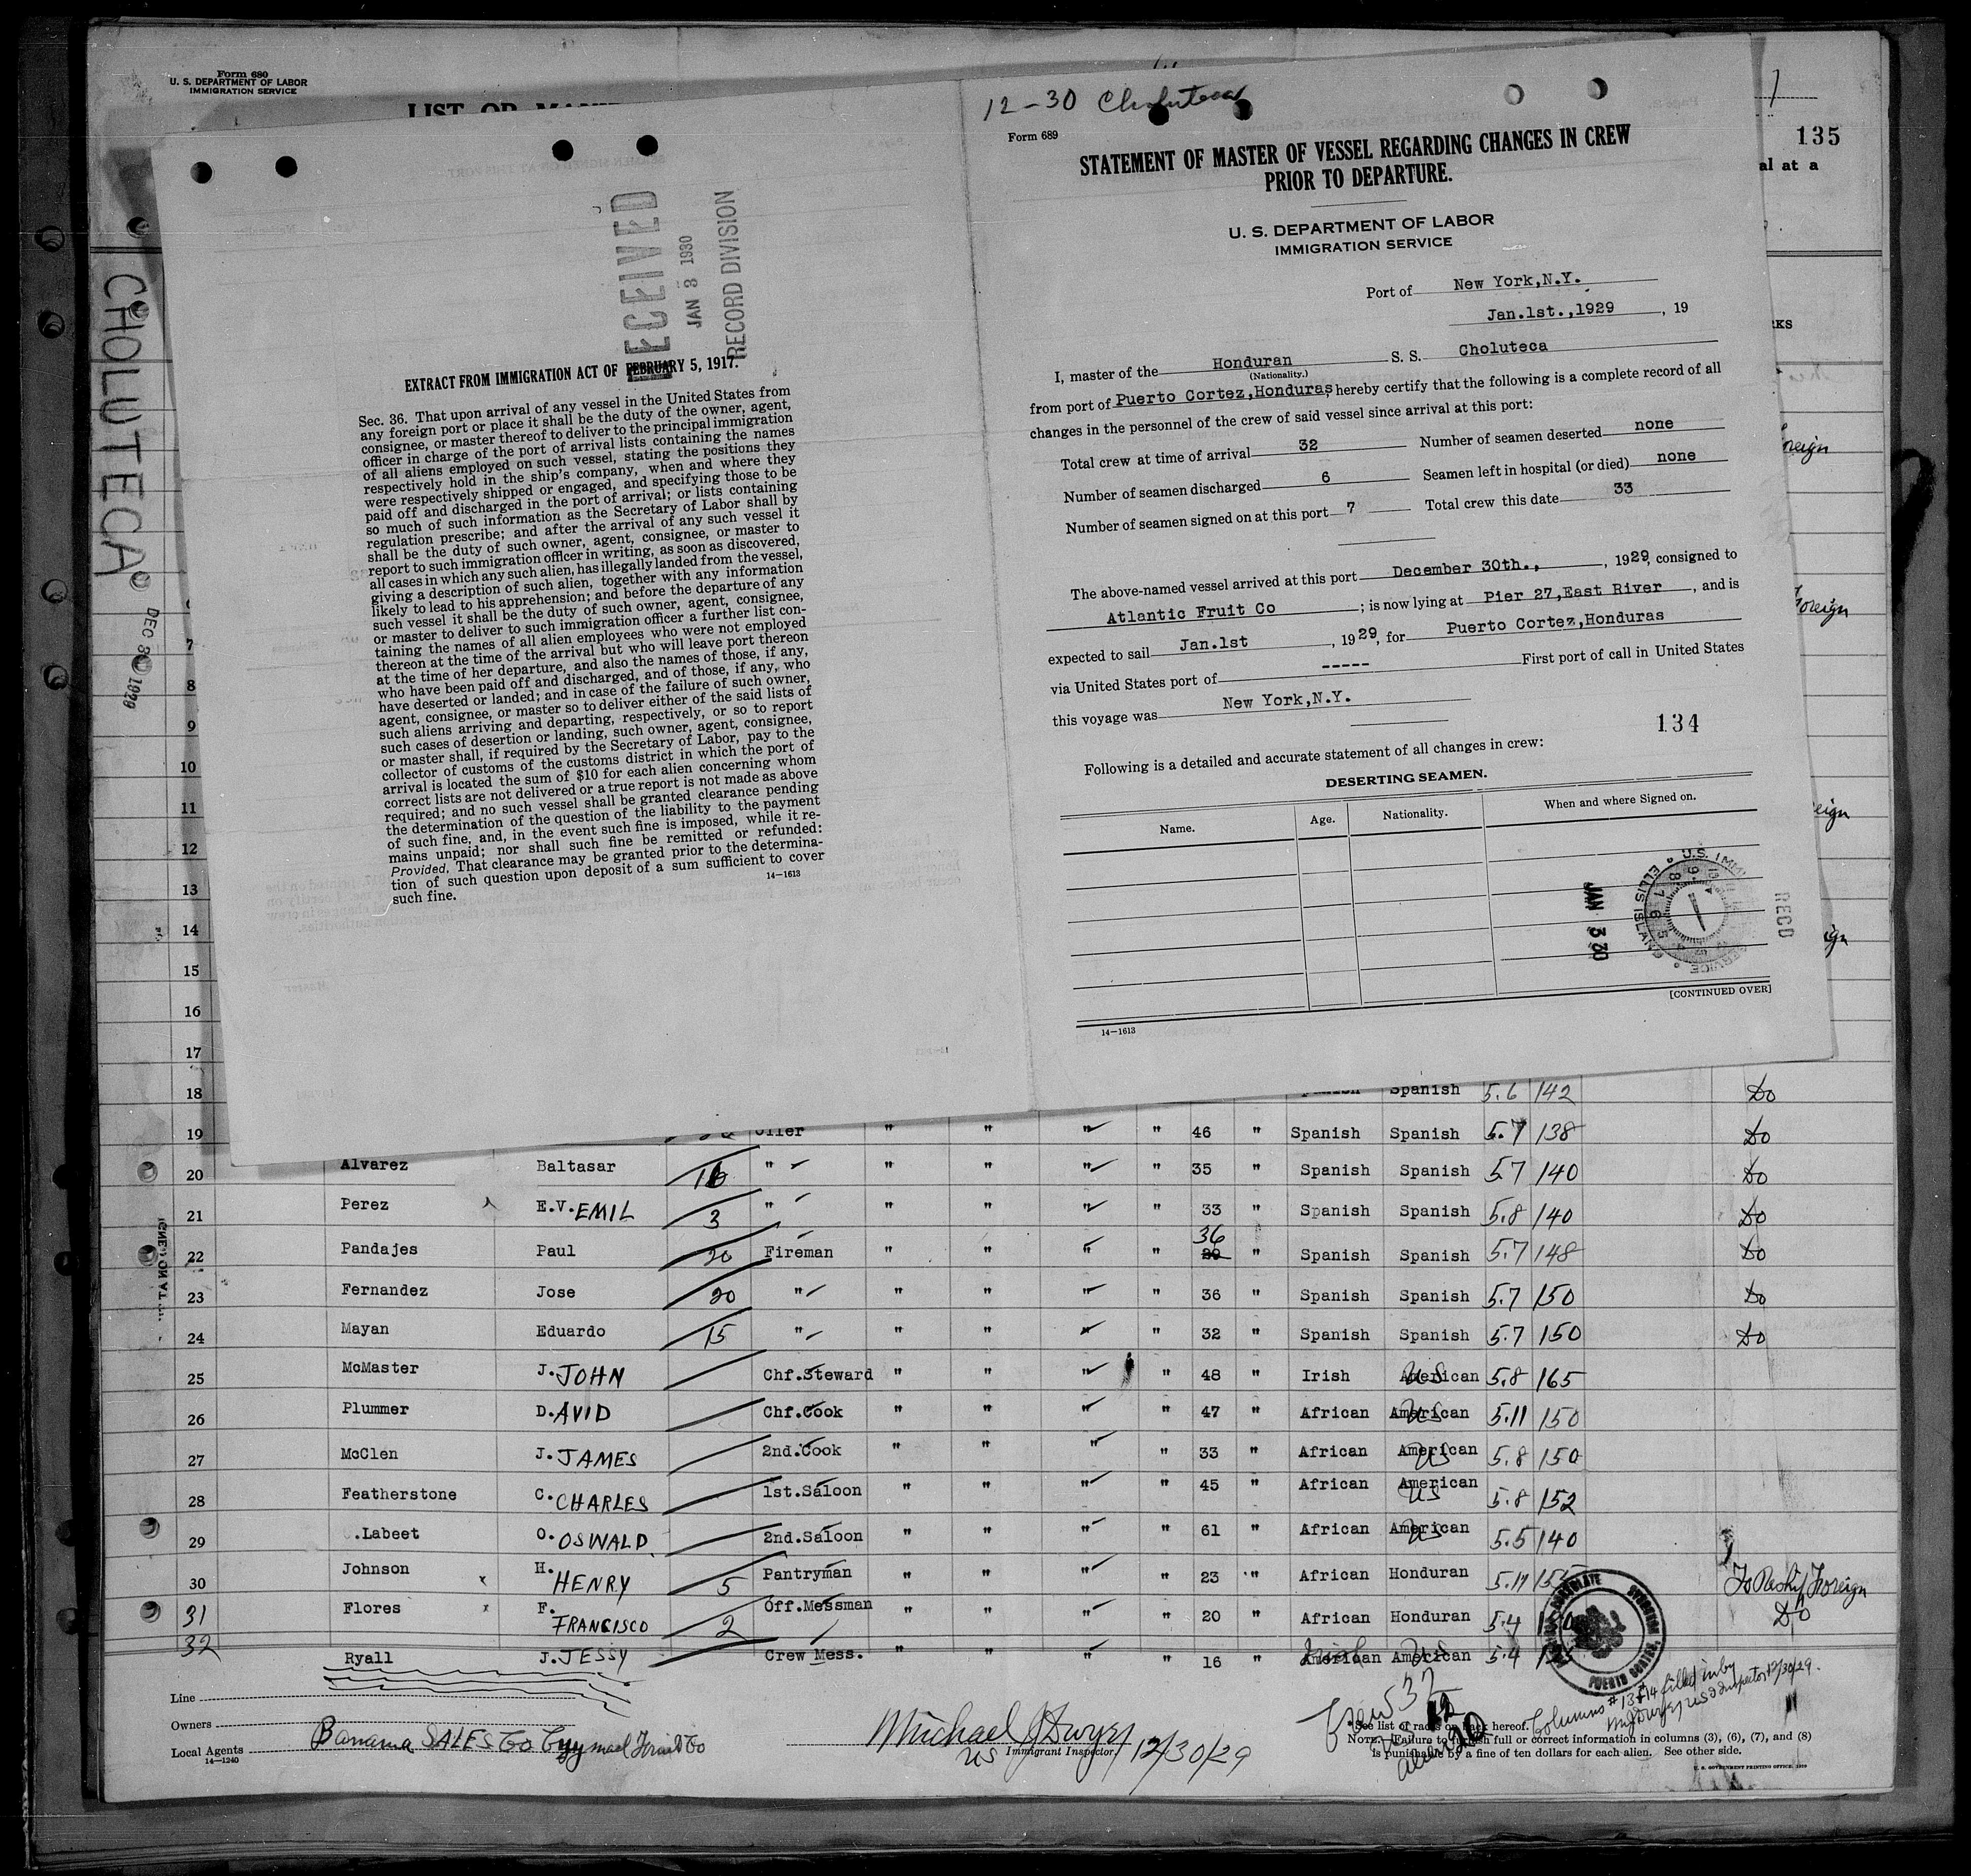 Form 680
U. S. DEPARTMENT OF LABOR
IMMIGRATION SERVICE
LIST OR
135
al at a
CHOLUTECA
DEC 30 1929
RECEIVED
JAN 3 1930
RECORD DIVISION
EXTRACT FROM IMMIGRATION ACT OF FEBRUARY 5, 1917.
Sec. 36. That upon arrival of any vessel in the United States from
any foreign port or place it shall be the duty of the owner, agent,
consignee, or master thereof to deliver to the principal immigration
officer in charge of the port of arrival lists containing the names
of all aliens employed on such vessel, stating the positions they
respectively hold in the ship's company, when and where they
were respectively shipped or engaged, and specifying those to be
paid off and discharged in the port of arrival; or lists containing
so much of such information as the Secretary of Labor shall by
regulation prescribe; and after the arrival of any such vessel it
shall be the duty of such owner, agent, consignee, or master to
report to such immigration officer in writing, as soon as discovered,
all cases in which any such alien, has illegally landed from the vessel,
giving a description of such alien, together with any information
likely to lead to his apprehension; and before the departure of any
such vessel it shall be the duty of such owner, agent, consignee,
or master to deliver to such immigration officer a further list con-
taining the names of all alien employees who were not employed
thereon at the time of the arrival but who will leave port thereon
at the time of her departure, and also the names of those, if any,
who have been paid off and discharged, and of those, if any, who
have deserted or landed; and in case of the failure of such owner,
agent, consignee, or master so to deliver either of the said lists of
such aliens arriving and departing, respectively, or so to report
such cases of desertion or landing, such owner, agent, consignee,
or master shall, if required by the Secretary of Labor, pay to the
collector of customs of the customs district in which the port of
arrival is located the sum of $10 for each alien concerning whom
correct lists are not delivered or a true report is not made as above
required; and no such vessel shall be granted clearance pending
the determination of the question of the liability to the payment
of such fine, and, in the event such fine is imposed, while it re-
mains unpaid; nor shall such fine be remitted or refunded:
Provided, That clearance may be granted prior to the determina-
tion of such question upon deposit of a sum sufficient to cover
such fine.
14—1613
12-30 Choluteca
Form 689
STATEMENT OF MASTER OF VESSEL REGARDING CHANGES IN CREW
PRIOR TO DEPARTURE.
U. S. DEPARTMENT OF LABOR
IMMIGRATION SERVICE
Port of New York,N.Y.
Jan.1st.,1929, 19
I, master of the Honduran S. S. Choluteca
(Nationality.)
from port of Puerto Cortez,Honduras, hereby certify that the following is a complete record of all
changes in the personnel of the crew of said vessel since arrival at this port:
Total crew at time of arrival 32 Number of seamen deserted none
Number of seamen discharged 6 Seamen left in hospital (or died) none
Number of seamen signed on at this port 7 Total crew this date 33
The above-named vessel arrived at this port December 30th., , 1929, consigned to
Atlantic Fruit Co ; is now lying at Pier 27,East River , and is
expected to sail Jan.1st , 1929, for Puerto Cortez,Honduras
via United States port of ----- First port of call in United States
this voyage was New York,N.Y.
134
Following is a detailed and accurate statement of all changes in crew:
DESERTING SEAMEN.
Name. Age. Nationality. When and where Signed on.
JAN 3 30
RECD
[CONTINUED OVER]
14—1613
7
8
9
10
11
12
13
14
15
16
17
18 Spanish 5.6 142 Do
19 Oiler " " " " 46 " Spanish Spanish 5.7 138 Do
20 Alvarez Baltasar " " " " " 35 " Spanish Spanish 5.7 140 Do
21 Perez E.V. EMIL 3 " " " " " 33 " Spanish Spanish 5.8 140 Do
22 Pandajes Paul 20 Fireman " " " " 36 " Spanish Spanish 5.7 148 Do
23 Fernandez Jose 20 " " " " " 36 " Spanish Spanish 5.7 150 Do
24 Mayan Eduardo 15 " " " " " 32 " Spanish Spanish 5.7 150 Do
25 McMaster J. JOHN Chf.Steward " " " " 48 " Irish American US 5.8 165
26 Plummer D.AVID Chf.Cook " " " " 47 " African American US 5.11 150
27 McClen J. JAMES 2nd.Cook " " " " 33 " African American US 5.8 150
28 Featherstone C. CHARLES 1st.Saloon " " " " 45 " African American US 5.8 152
29 .Labeet O. OSWALD 2nd.Saloon " " " " 61 " African American US 5.5 140
30 Johnson x H. HENRY 5 Pantryman " " " " 23 " African Honduran Foreign
31 Flores x F. FRANCISCO 2 Off.Messman " " " " 20 " African Honduran 5.4 Do
32 Ryall J. JESSY Crew Mess. " " " " 16 " American American US 5.4
Line
Owners
Local Agents Banana SALES Co Cuyamel Fruit Co
14—1240
Michael J Dwyer
US Immigrant Inspector 12/30/29
Crew 32
Columns #13 #14 filled in by
US Inspector 12/30/29.
*See list of races on back hereof.
NOTE.—Failure to furnish full or correct information in columns (3), (6), (7), and (8)
is punishable by a fine of ten dollars for each alien. See other side.
U. S. GOVERNMENT PRINTING OFFICE: 1929